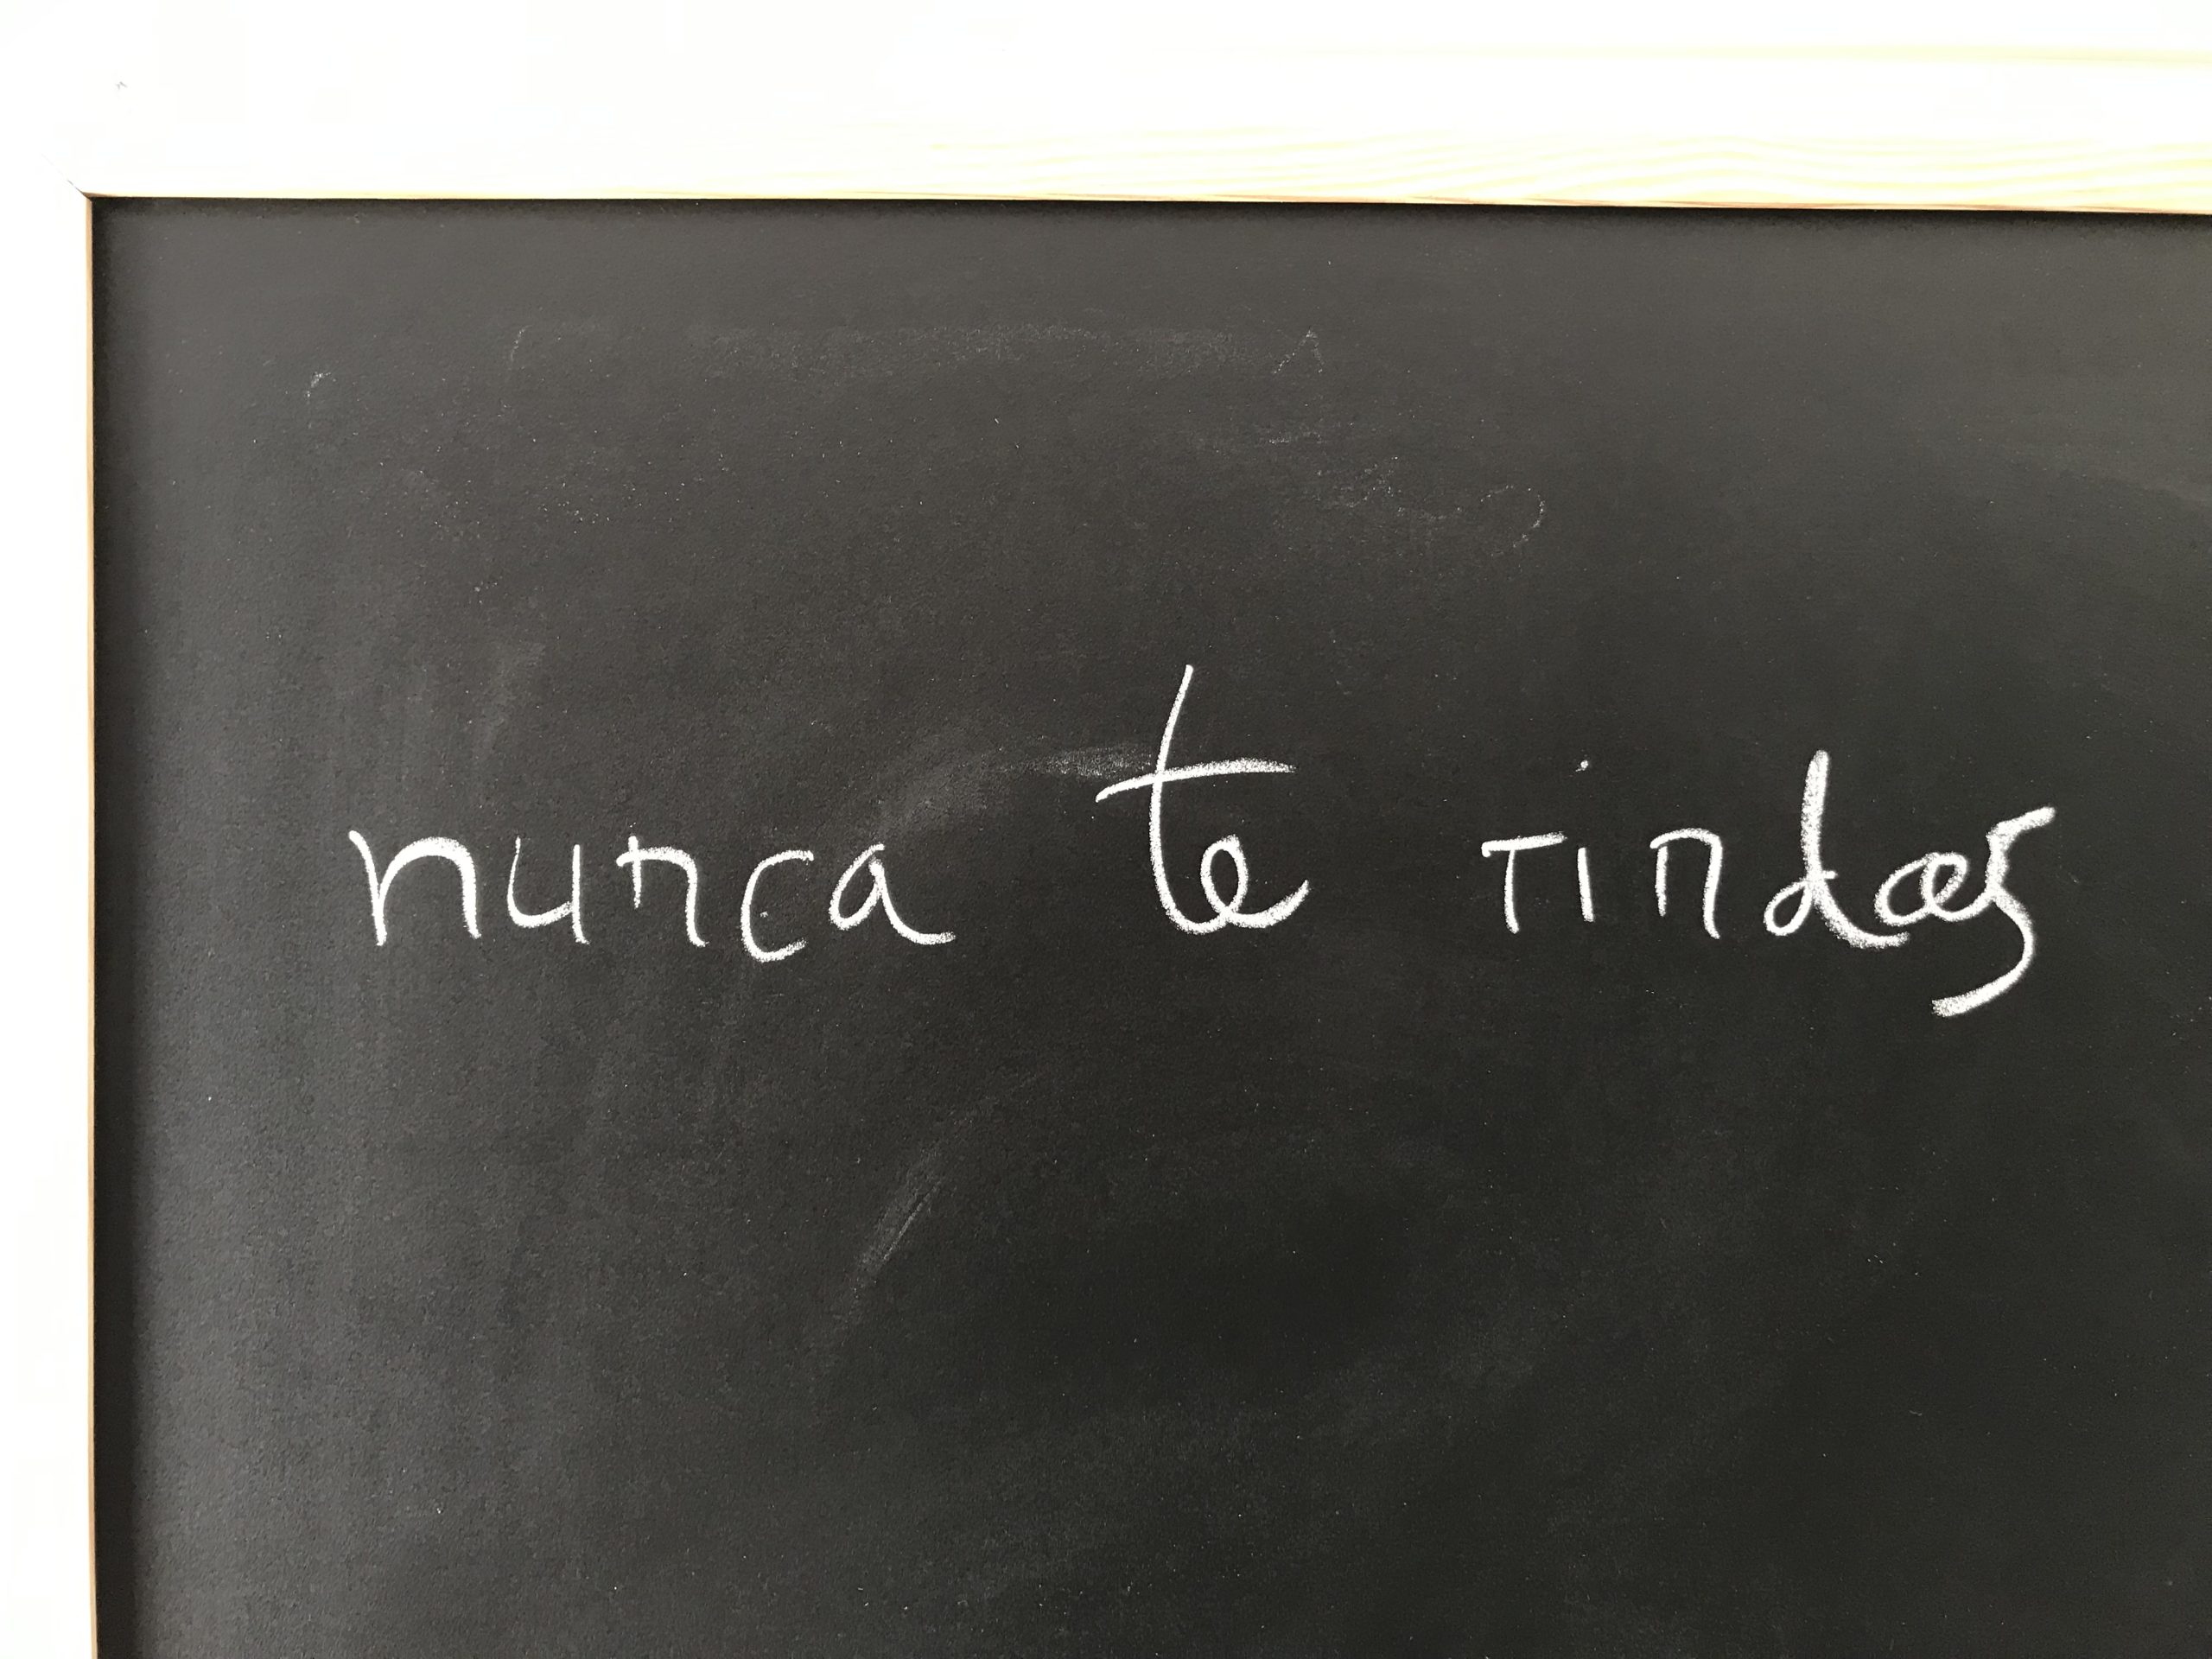 nunca te rindas